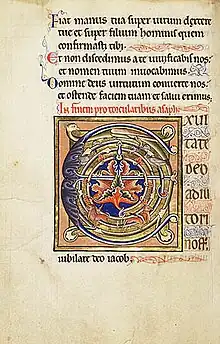 Fiat manus tua super virum dextere
tue et super filium hominis quem
confirmasti tibi.
Et non discedimus a te vivificabis nos
et nomen tuum invocabimus
Domine deus virtutum converte nos
et ostende faciem tuam et salvi erimus.
In finem pro torcularibus asaph
EXUL
tate
deo
adiu
tori
nostr
iubilate deo iacob.